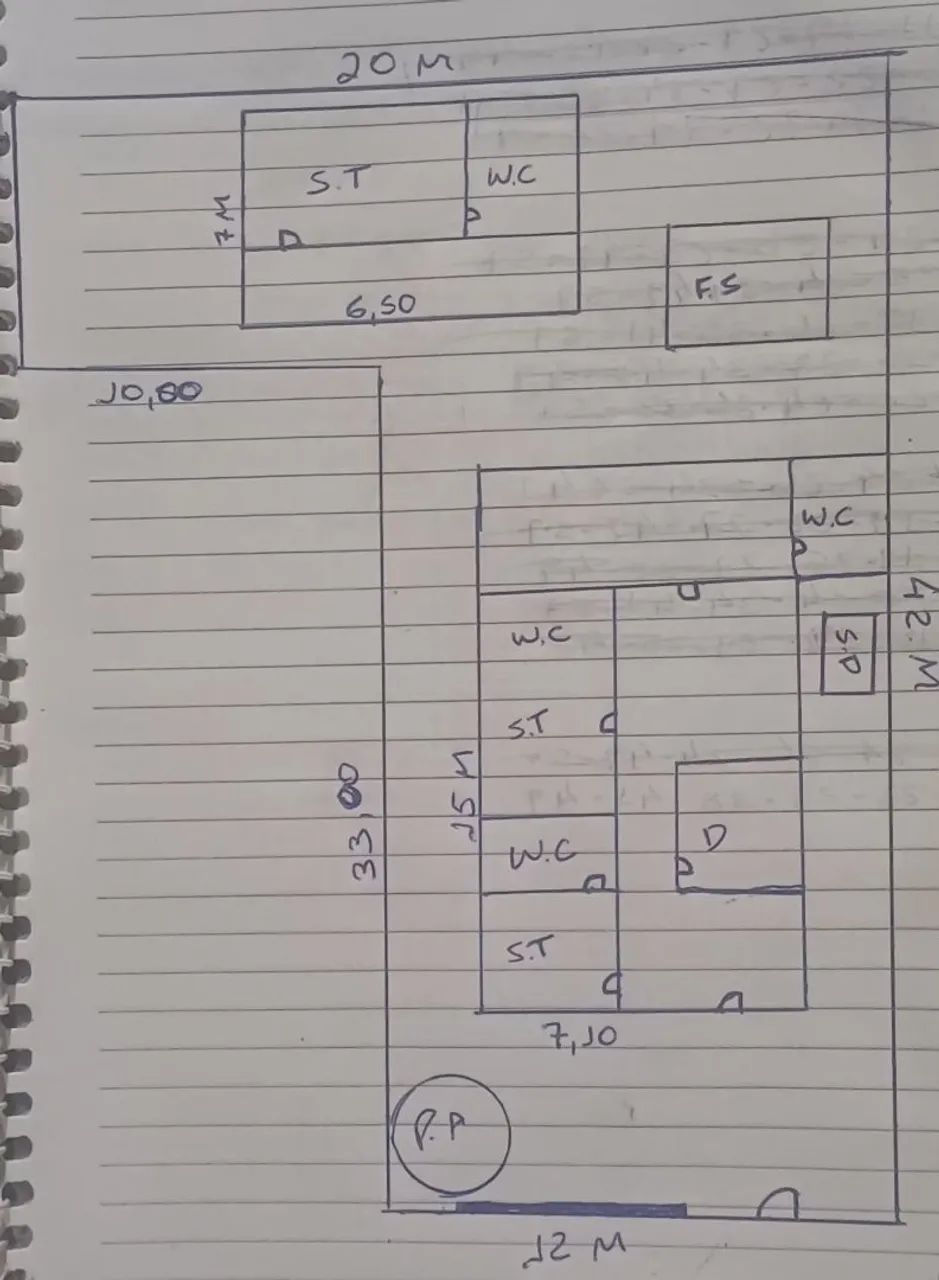 20 M
S.T
W.C
7 M
D
6,50
F.S
10,80
W.C
42 M
W.C
S.D
S.T
15 M
33,00
D
W.C
S.T
7,10
P.P
12 M